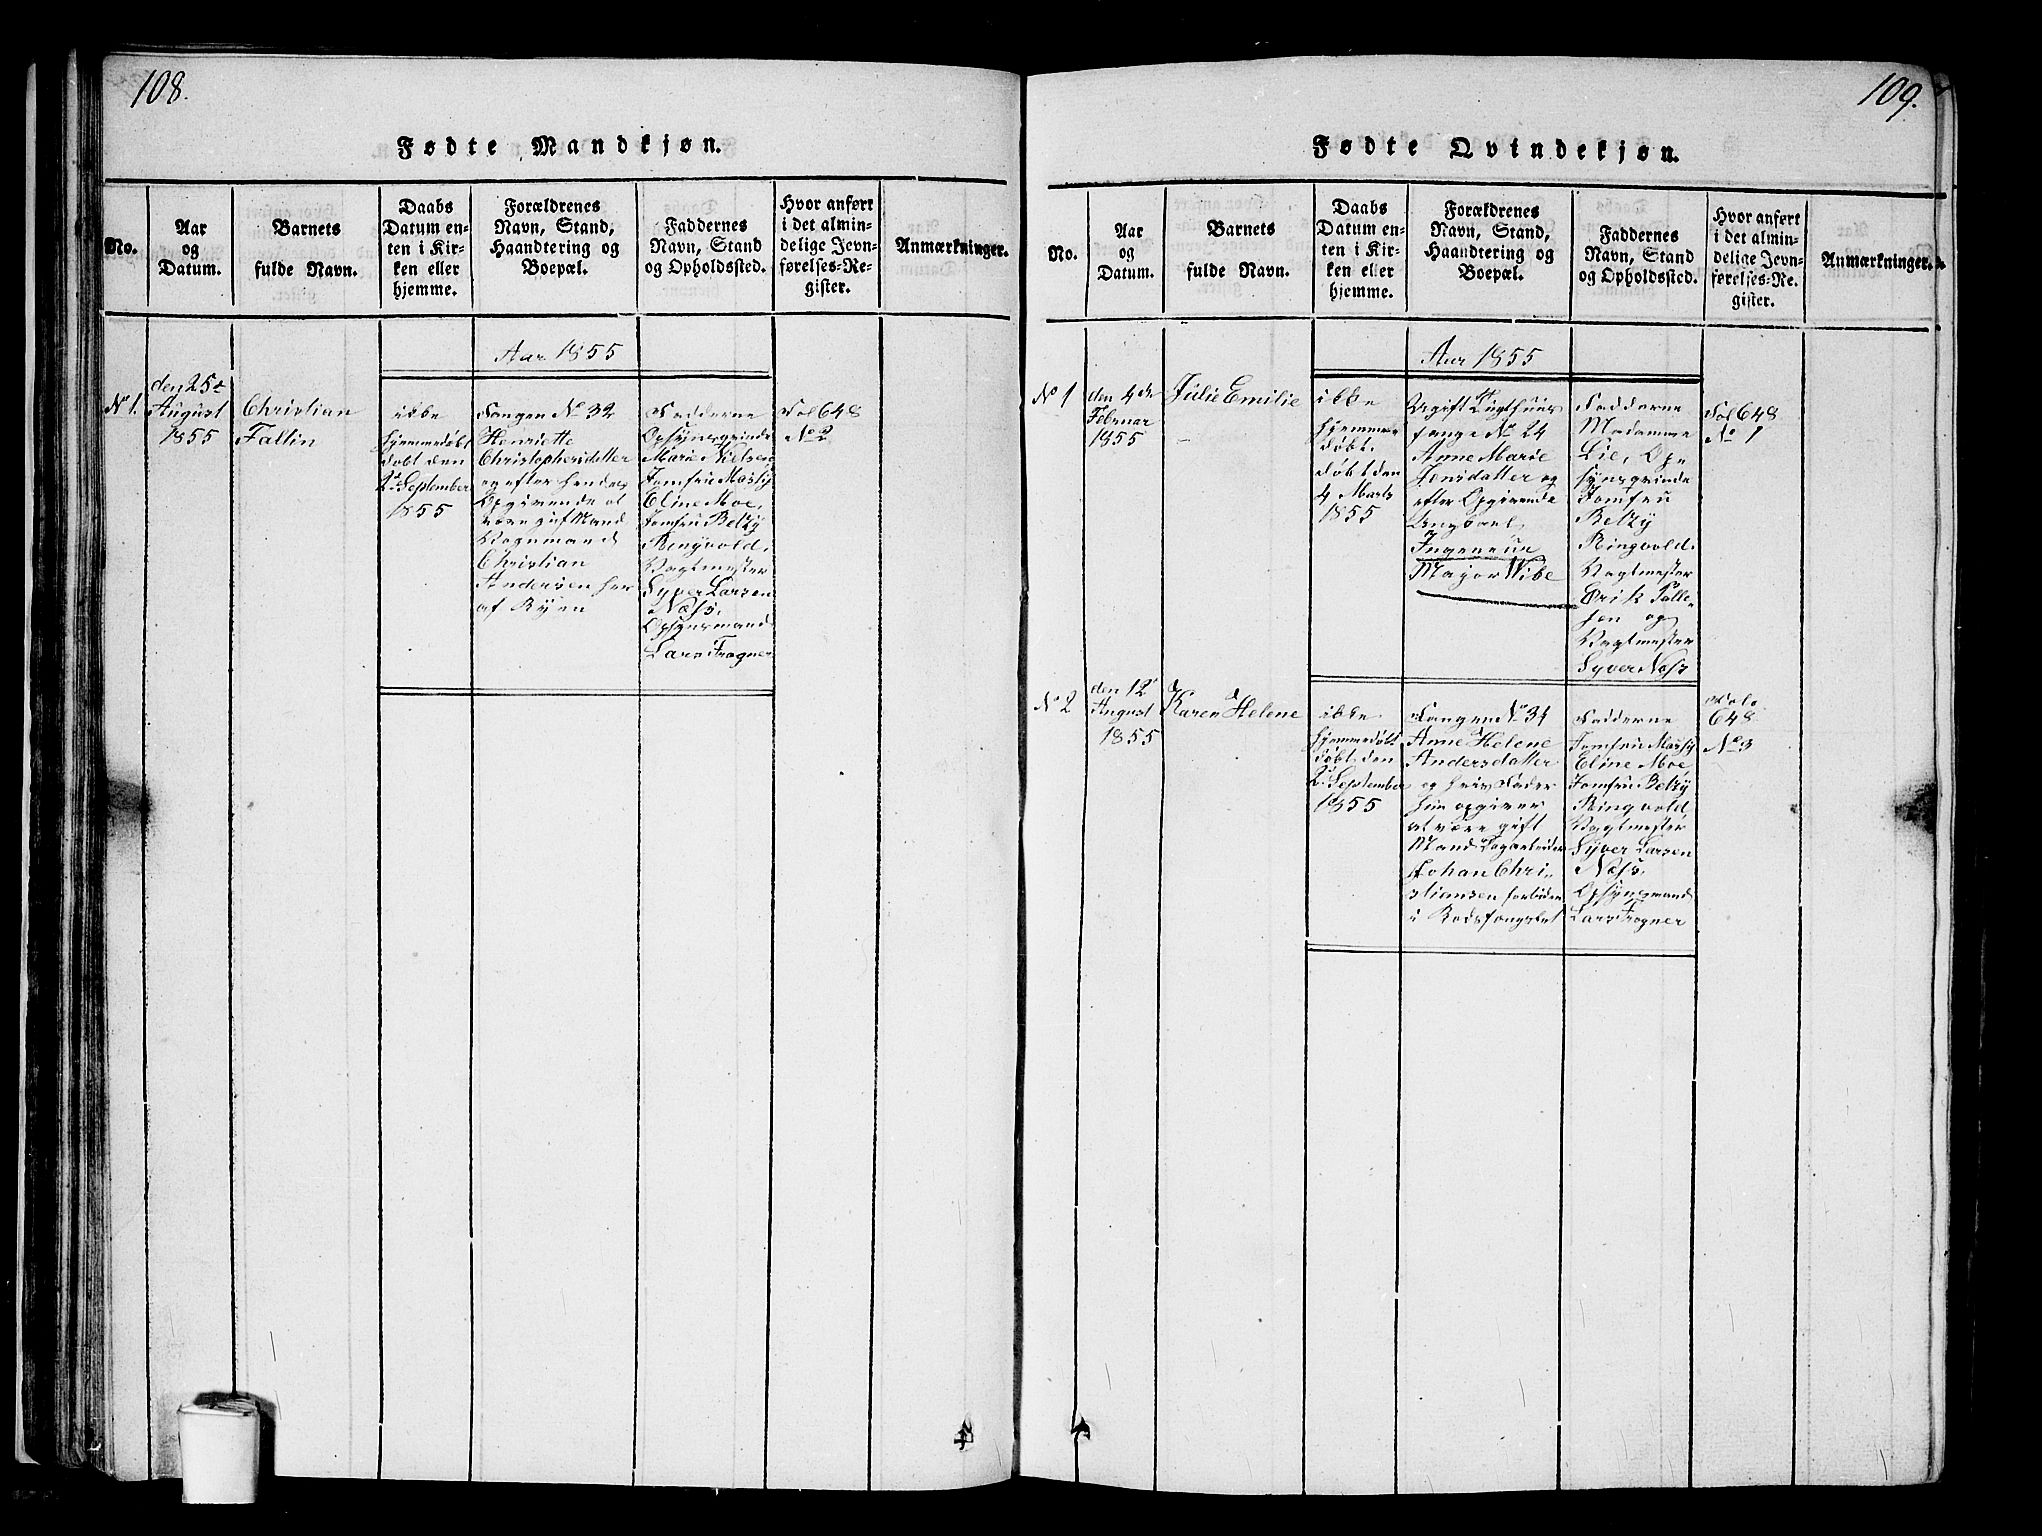 108.
Fødte Mandkjøn.
No.
Aar
og
Datum.
Barnets
fulde Navn.
Daabs
Datum en-
ten i Kir-
ken eller
hjemme.
Forældrenes
Navn, Stand,
Haandtering og
Boepæl.
Faddernes
Navn, Stand
og Opholdssted.
Hvor anført
i det almin-
delige Jevn-
førelses-Re-
gister.
Anmærkninger.
Aar 1855
No 1.
den 25de
August
1855
Christian
Fallin
ikke
hjemmedøbt
døbt den
2den September
1855
Fangen No 32
Henriette
Christophersdatter
og efter hendes
Opgivende at
være gift Mand
Vognmand
Christian
Andersen her
af Byen
Fadderne
Opsynsqvinde
Marie Nielsen
Jomfru
Eline Moe,
Jomfru Betzy
Ringvold,
Vagtmester
Syver Larsen
Næss,
Opsynsmand
Lars Frogner
Fol 648
No 2
109.
Fødte Qvindekjøn.
No.
Aar
og
Datum.
Barnets
fulde Navn.
Daabs
Datum en-
ten i Kir-
ken eller
hjemme.
Forældrenes
Navn, Stand,
Haandtering og
Boepæl.
Faddernes
Navn, Stand
og Opholdssted.
Hvor anført
i det almin-
delige Jevn-
førelses-Re-
gister.
Anmærkninger.
Aar 1855
No 1
den 4de
Februar
1855
Julie Emilie
ikke
hjemme
døbt.
døbt den
4 Marts
1855
Ugift Tugthuus
fange No 24
Anne Marie
Jensdatter og
efter Opgivende
Ungkarl
Ingeneur
Major Wibe
Fadderne
Madamme
Lie, Op
synsqvinde
Jomfru
Betzy
Ringvold.
Vagtmester
Erik Palle-
sen og
Vagtmester
Syver Næss
Fol 648
No 1
No 2
den 12te
August
1855
Karen Helene
ikke
hjemmedøbt
døbt den
2den September
1855
Fangen No 31
Anne Helene
Andersdatter
og hvis Fader
hun opgiver
at være gift
Mand Dagarbeider
Johan Chri-
stiansen forhv.
i Bodsfængslet
Fadderne
Jomfru
Eline Moe
Jomfru Betzy
Ringvold
Vagtmester
Syver Larsen
Næss,
Opsynsmand
Lars Frogner
Folo
648
No 3